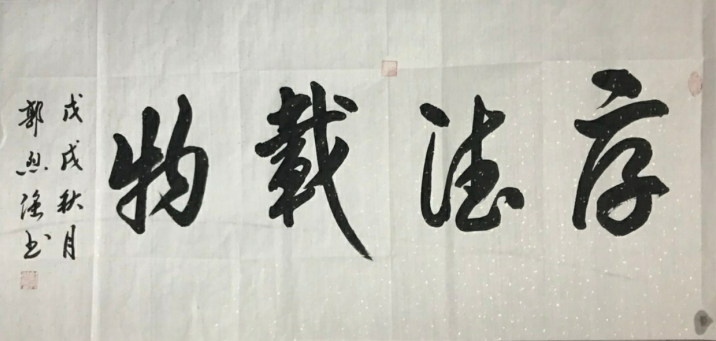 厚德载物
戊戌秋月
郭
书